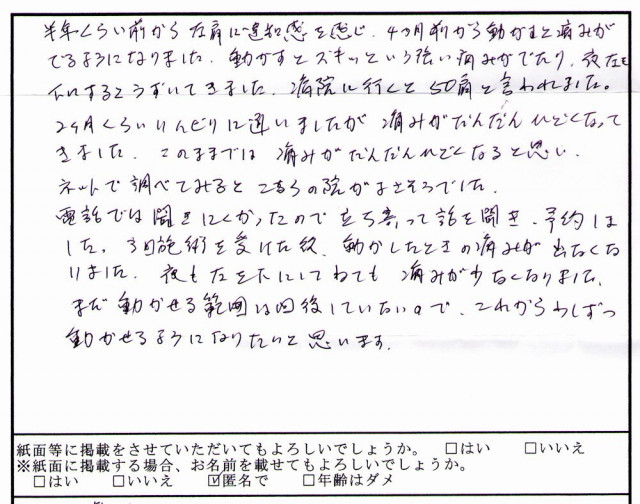 半年くらい前から左肩に違和感を感じ、4ヶ月前から動かすと痛みが
でるようになりました。動かすとズキッという強い痛みがでたり、夜左を
下にするとうずいてきました。病院に行くと50肩と言われました。
2ヶ月くらいリハビリに通いましたが痛みがだんだんひどくなって
きました。このままでは痛みがだんだんひどくなると思い、
ネットで調べてみるとこちらの院がよさそうでした。
電話では聞きにくかったので立ち寄って話を聞き、予約しま
した。3回施術を受けた後、動かしたときの痛みが出なくな
りました。夜も左を下にしてねても痛みが少なくなりました。
まだ動かせる範囲は回復していないので、これから少しずつ
動かせるようになりたいと思います。
紙面等に掲載をさせていただいてもよろしいでしょうか。 □はい □いいえ
※紙面に掲載する場合、お名前を載せてもよろしいでしょうか。
□はい □いいえ ☑匿名で □年齢はダメ